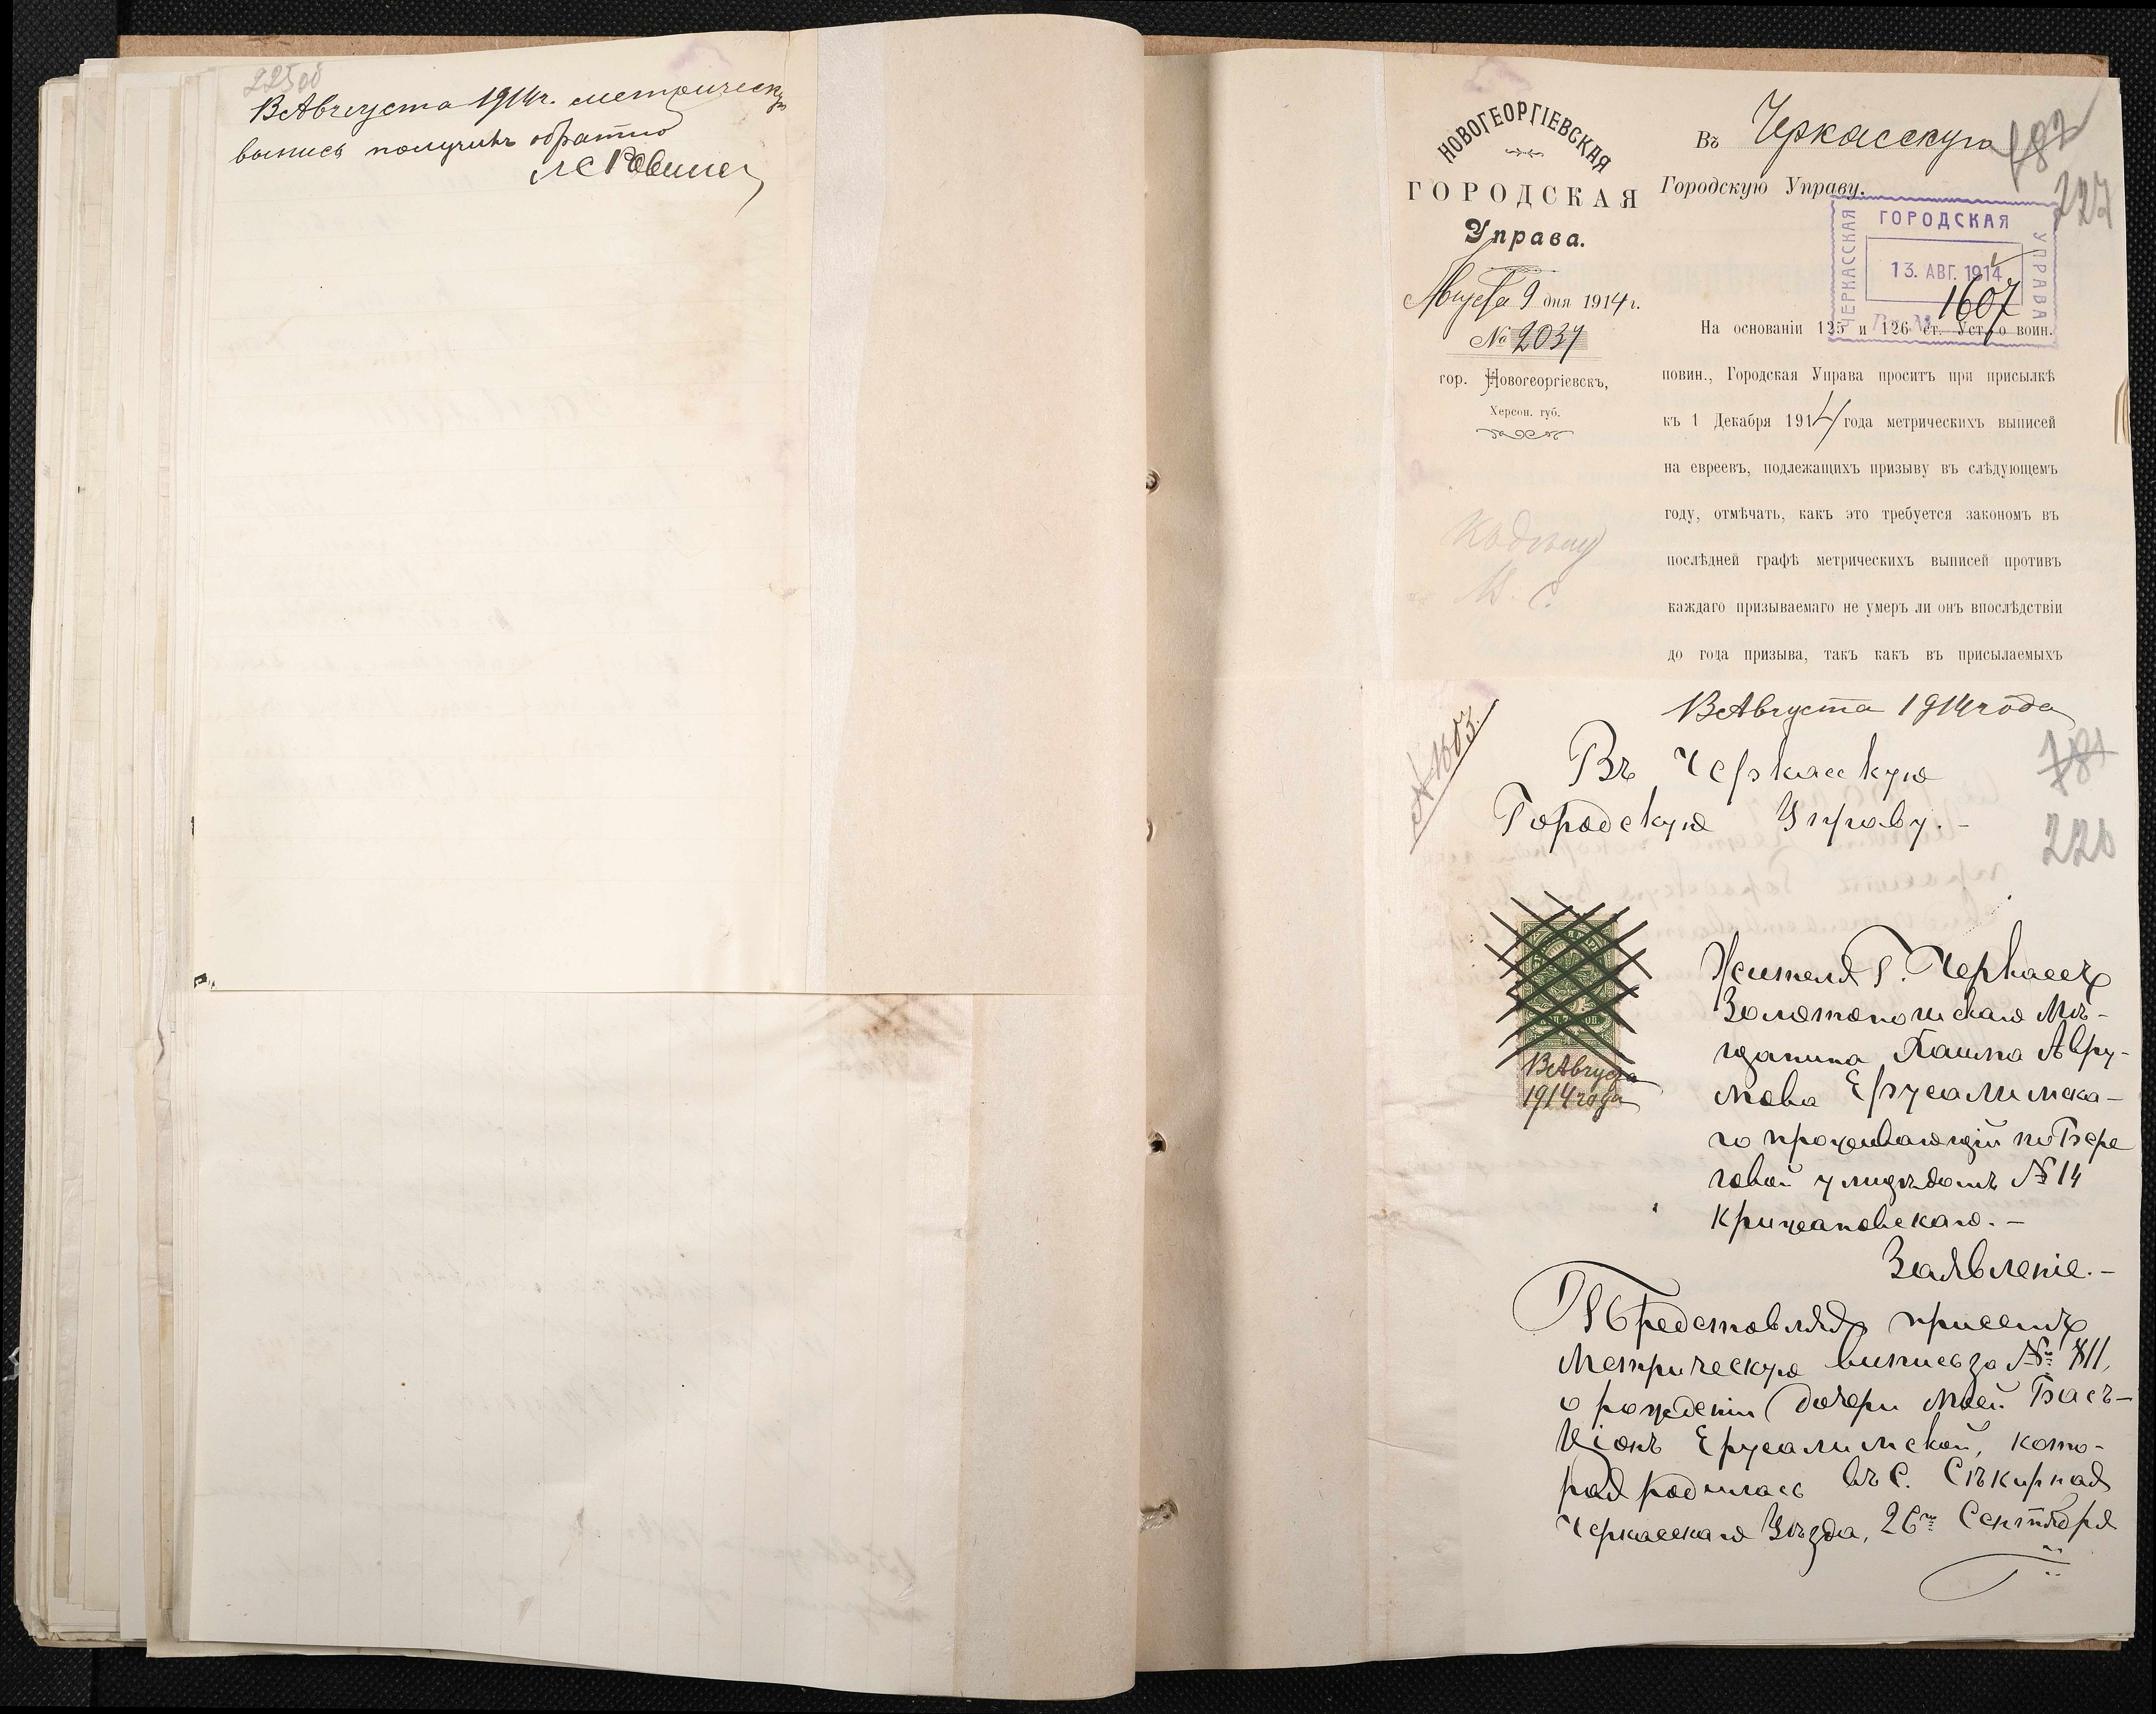 225об
13 Августа 1914г. метрическую
выпись получилъ обратно
НОВОГЕОРГІЕВСКАЯ
ГОРОДСКАЯ
Управа.
Августа 9 дня 1914 г.
№ 2037
гор. Новогеоргіевскъ,
Херсон. губ.
Въ Черкасскую
Городскую Управу.
227
ЧЕРКАССКАЯ ГОРОДСКАЯ УПРАВА
13. АВГ. 1914
1607
На основаніи 125 и 126 ст. Уст. о воин.
повин., Городская Управа проситъ при присылкѣ
къ 1 Декабря 1914 года метрическихъ выписей
на евреевъ, подлежащихъ призыву въ слѣдующемъ
году, отмѣчать, какъ это требуется закономъ въ
послѣдней графѣ метрическихъ выписей противъ
каждаго призываемаго не умеръ ли онъ впослѣдствіи
до года призыва, такъ какъ въ присылаемыхъ
№ 1603.
13 Августа 1914 года
Въ Черкасскую
Городскую Управу.-
781
226
13 Августа
1914 года
Жителя г. Черкассъ
Золотопольскаго Мѣ-
щанина Авру-
мова Ерусалимска-
го проживающій по Бере
говой улицѣ домъ №14
Крижановскаго.-
Заявленіе.-
Представляя присемъ
Метрическую выпись за № 811,
о рожденіи дочери моей Бась-
Ціонъ Ерусалимской, кото-
рая родилась въ с. Сѣкирная
Черкасскаго Уѣзда, 26го Сентября